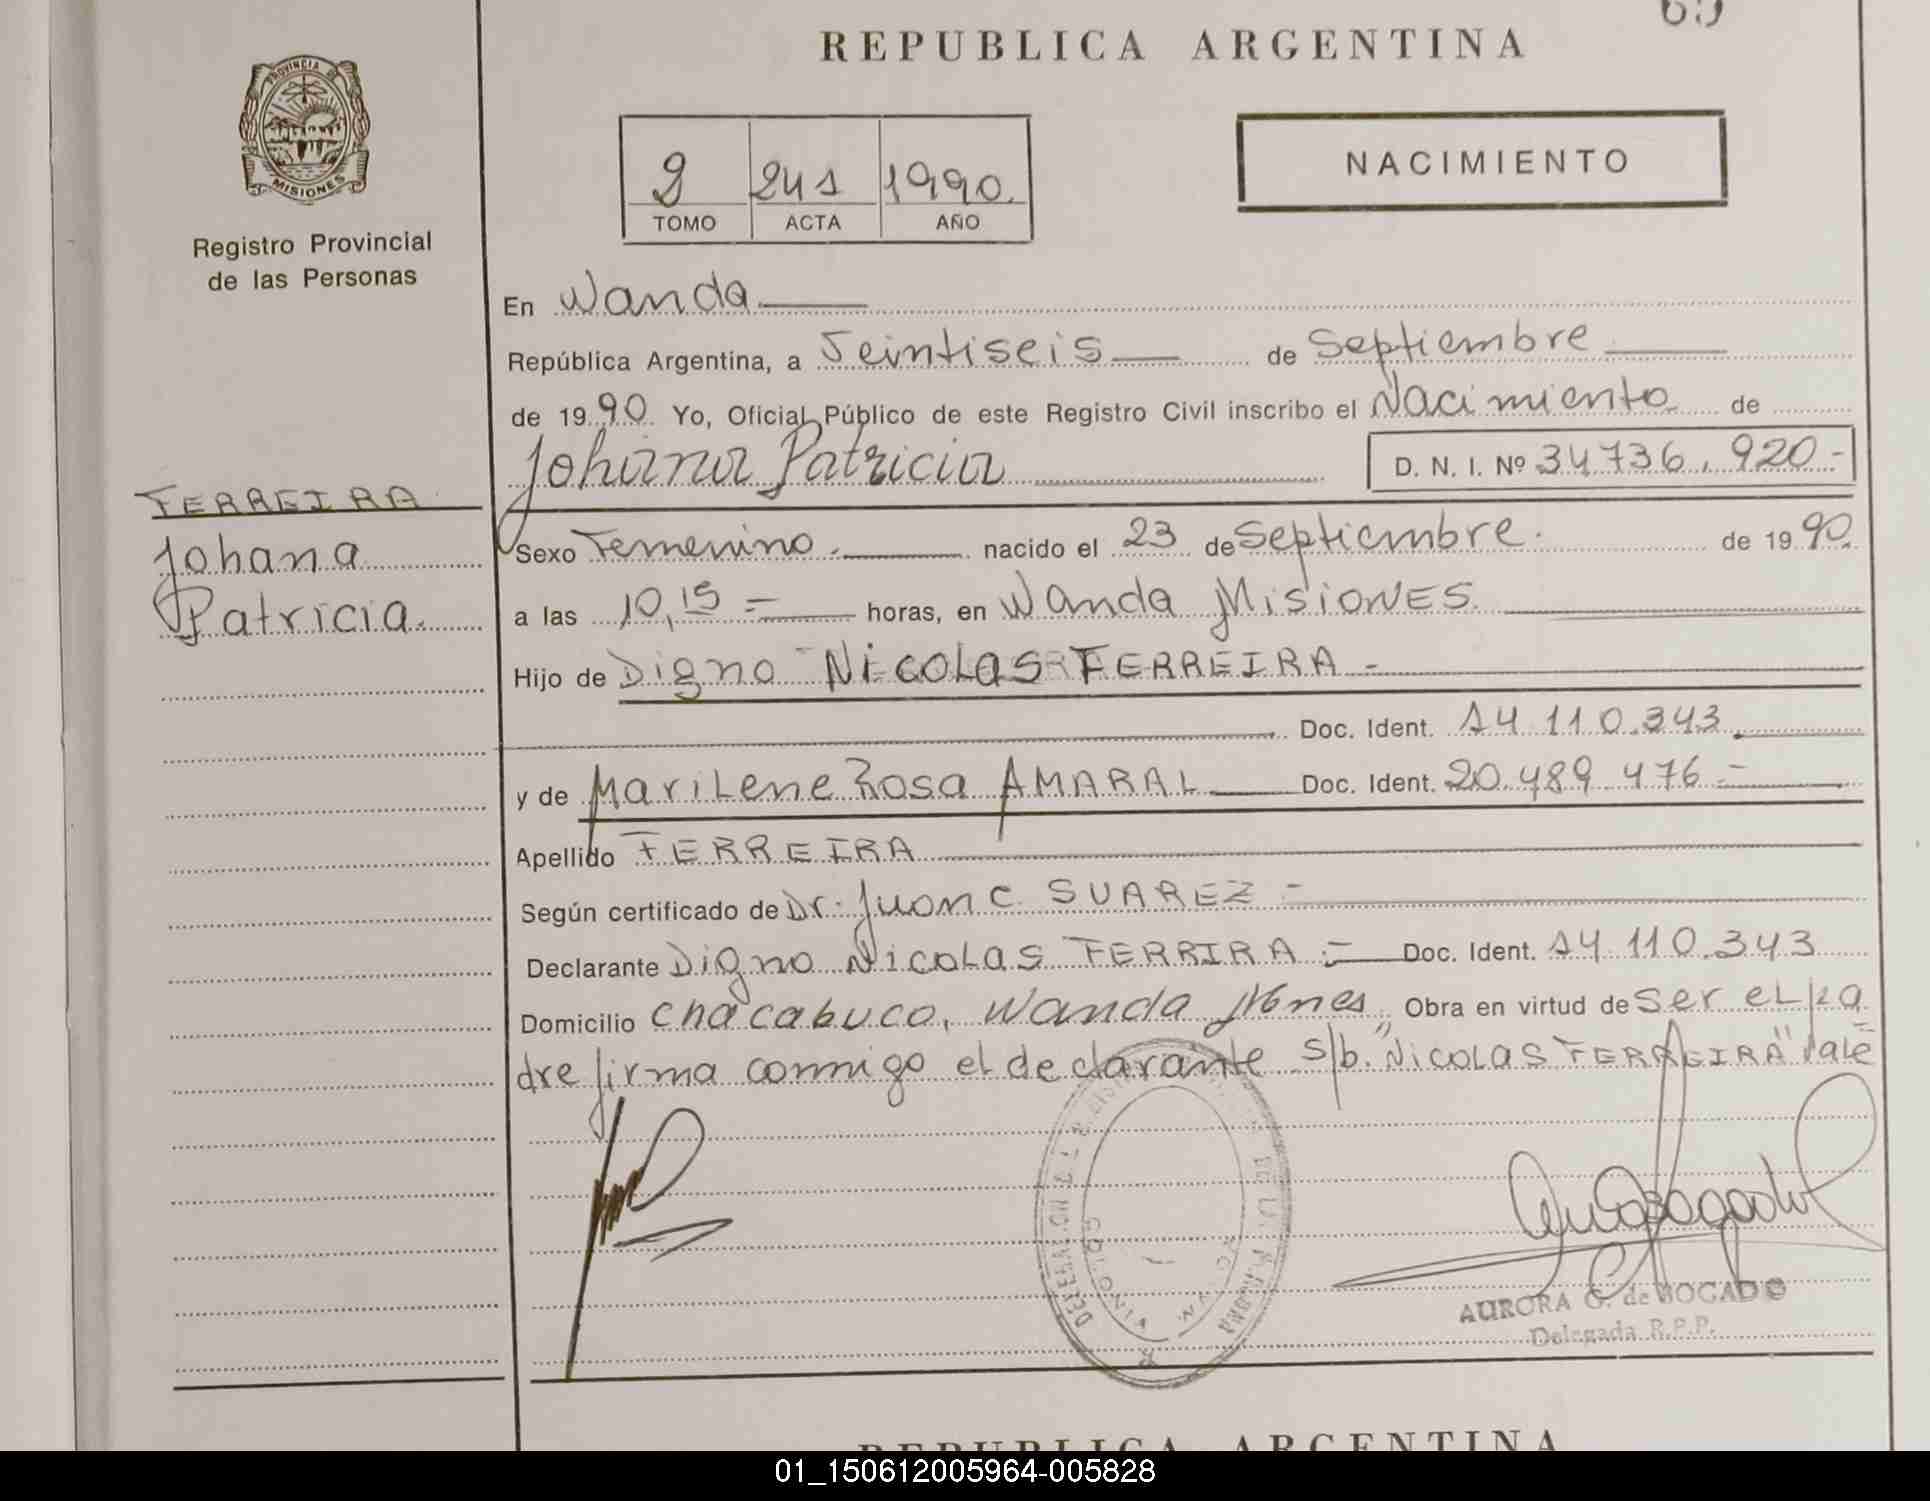 69
REPUBLICA ARGENTINA
PROVINCIA DE
MISIONES
Registro Provincial
de las Personas
2 241 1990.
TOMO ACTA AÑO
NACIMIENTO
En Wanda
República Argentina, a Veintiseis de Septiembre
de 1990 Yo, Oficial Público de este Registro Civil inscribo el Nacimiento de
Johana Patricia D. N. I. Nº 34736.920-
FERREIRA
Johana
Patricia.
Sexo Femenino. nacido el 23 de Septiembre. de 1990.
a las 10,15 = horas, en Wanda MISIONES.
Hijo de Digno NICOLAS FERREIRA -
Doc. Ident. 14.110.343.
y de MariLene Rosa AMARAL Doc. Ident. 20.489.476 =
Apellido FERREIRA
Según certificado de Dr. Juan C. SUAREZ -
Declarante Digno NICOLAS FERRIRA = Doc. Ident. 14.110.343
Domicilio Chacabuco, Wanda Mnes, Obra en virtud de ser el pa
dre firma conmigo el declarante s/b. "NICOLAS FERREIRA" Vale =
AURORA G. de BOGADO
Delegada R.P.P.
REPUBLICA ARGENTINA
01_150612005964-005828